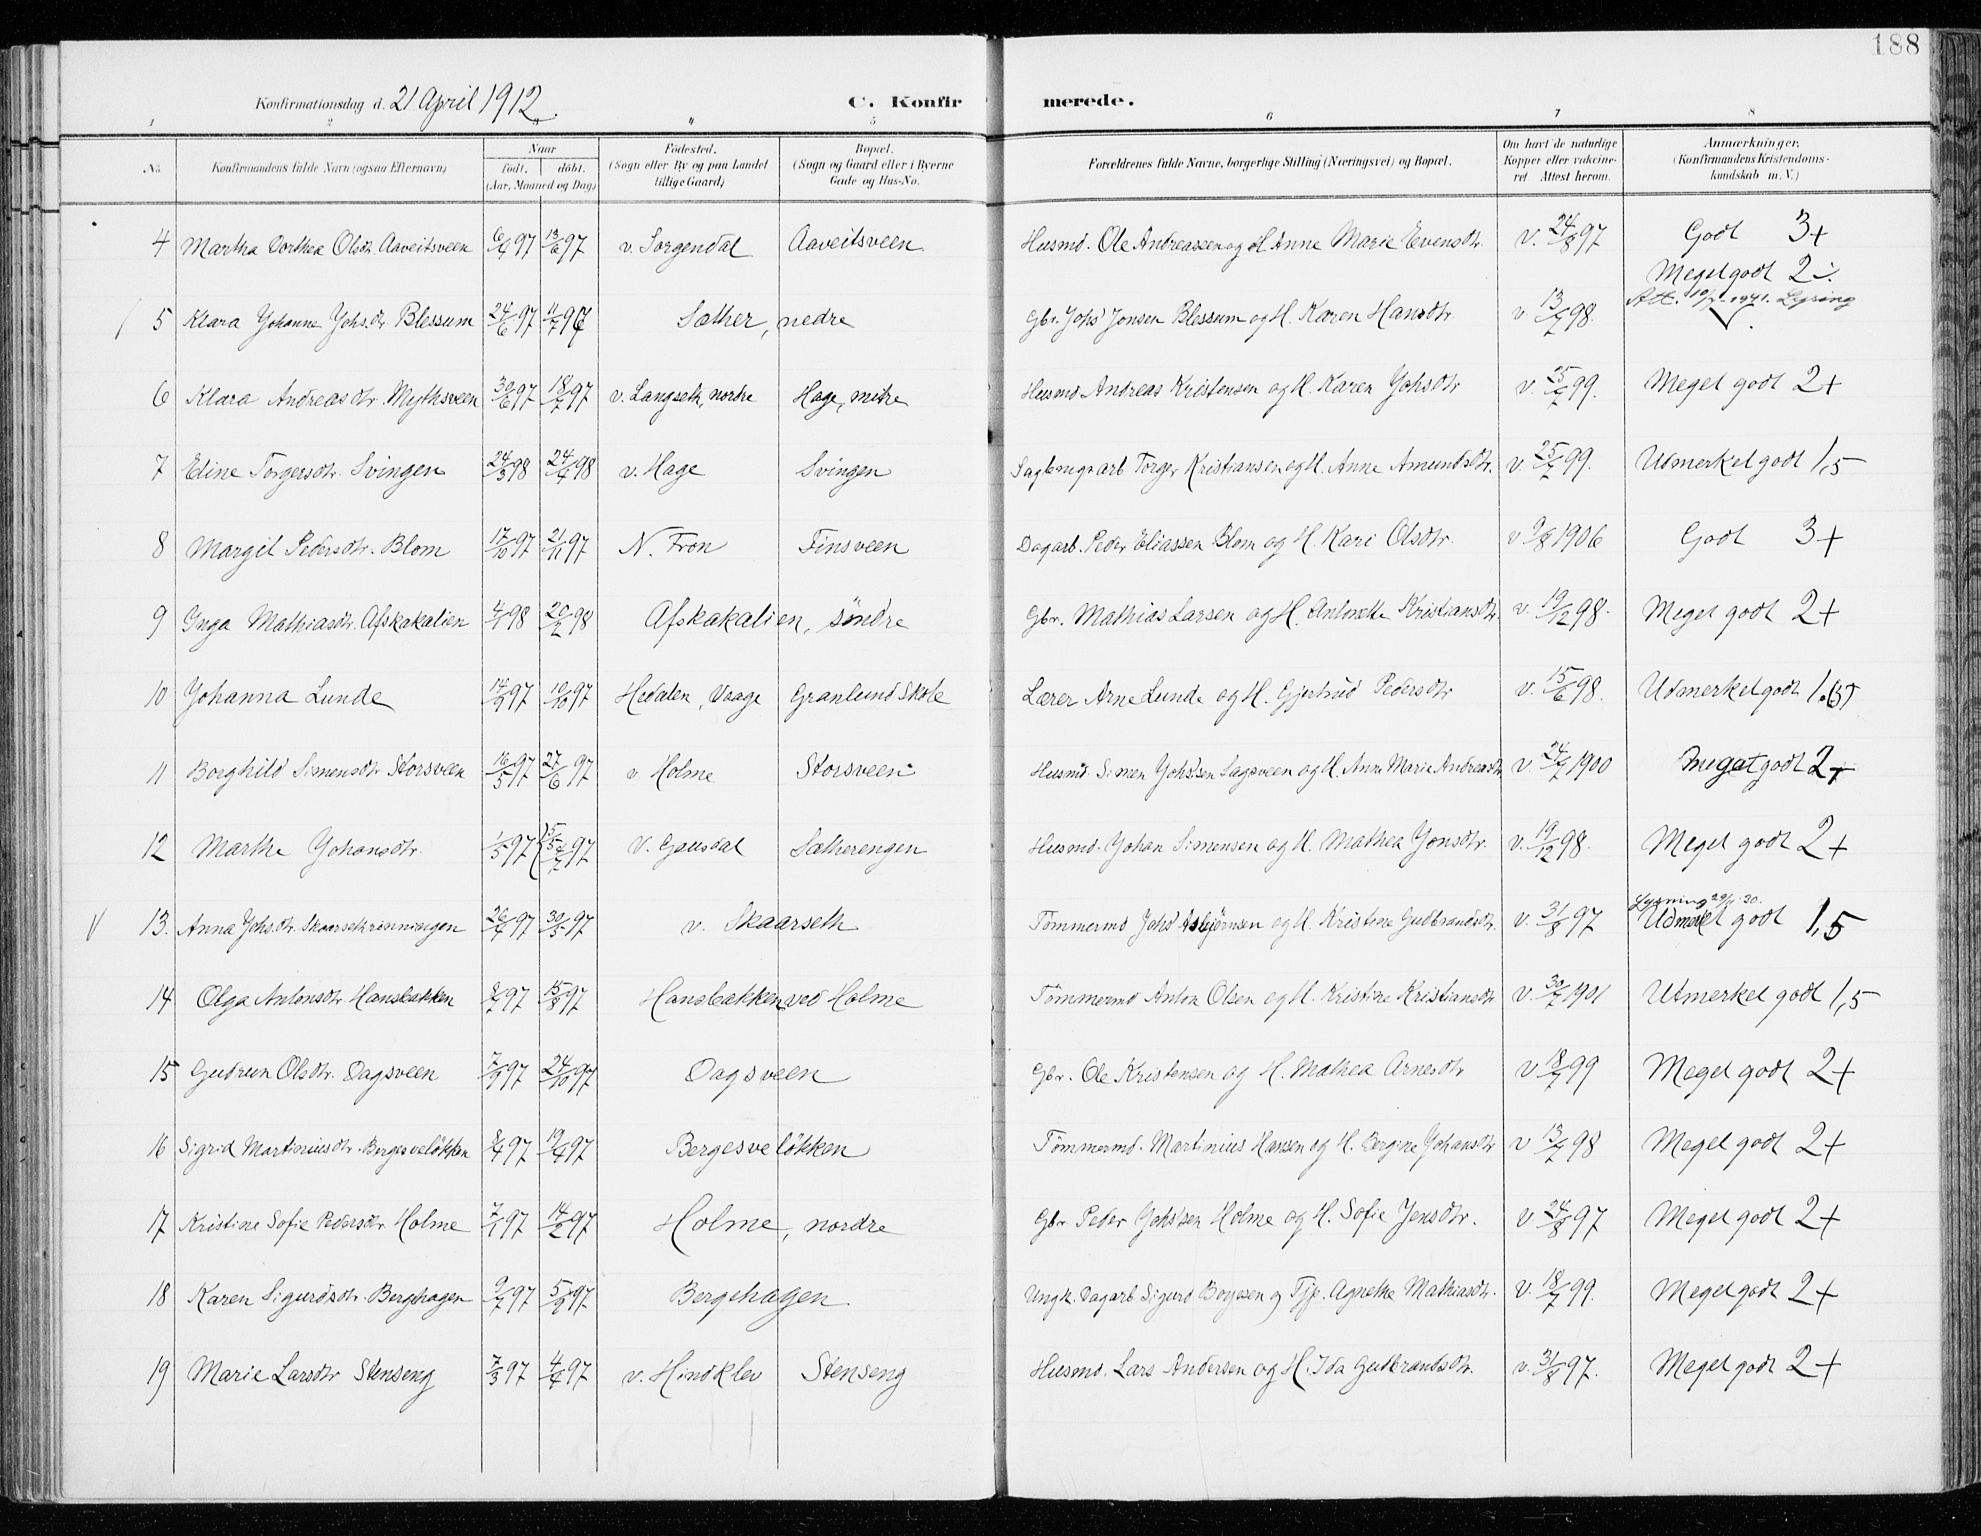 188
Konfirmationsdag d. 21 April 1912. C. Konfirmerede.
1 2 3 4 5 6 7 8
No. Konfirmandens fulde Navn (ogsaa Efternavn) Naar født. døbt. (Aar, Maaned og Dag) Fødested. (Sogn eller By og paa Landet tillige Gaard) Bopæl. (Sogn og Gaard eller i Byerne Gade og Hus-No. Forældrenes fulde Navne, borgerlige Stilling (Næringsvei) og Bopæl. Om havt de naturlige Kopper eller vakcineret Attest herom. Anmærkninger. (Konfirmandens Kristendomskundskab m. V.)
4 Martha Dorthea Olsdtr. Aaveitsveen 6/4 97 13/6 97 v. Sorgendal Aaveitsveen Husmd. Ole Andreassen og H. Anne Marie Evensdtr. v. 24/8 97 Godt 3+
Meget godt 2÷
5 Klara Johanne Johs.dtr Blessum 24/6 97 11/7 97 Sæther, nedre Gbr. Johs' Jonsen Blessum og H. Karen Hansdtr. v. 13/7 98. Att. 10/7 1941. Lysning
6 Klara Andreasdtr. Mythsveen 30/6 97 18/7 97 v. Langseth, nordre Hage, mitre Husmd Andreas Kristensen og H. Karen Johsdtr v. 25/7 99. Meget godt 2+
7 Edine Torgersdtr. Svingen 24/3 98 24/4 98 v. Hage Svingen Sagbrugsarb Torger Kristiansen og H. Anne Amundsdtr. v 25/7 99. Utmerket godt 1,5
8 Margit Pedersdtr. Blom 17/10 97 21/11 97 N. Fron Finsveen Dagarb. Peder Eliassen Blom og H. Kari Olsdtr. v 9/8 1906 Godt 3+
9 Inga Mathiasdtr. Afskakalien 4/1 98 20/2 98 Afskakalien, söndre Gbr. Mathias Larsen og H. Antonette Kristiansdtr. v. 19/12 98. Meget godt 2+
10 Johanna Lunde 14/9 97 10/10 97 Hedalen, Vaage Granlund Skole Lærer Arne Lunde og H. Gjertrud Pedersdtr v. 15/6 98. Udmerket godt
11 Borghild Simensdtr Storsveen 16/5 97 27/6 97 v Holme Storsveen Husmd. Simen Johs'sen Sagsveen og H. Anne Marie Andreasdtr v. 24/7 1900 Meget godt 2+
12 Marthe Johansdtr. 1/5 97 97 V. Gausdal Sætherengen Husmd. Johan Simensen og H. Mathea Jonsdtr. v. 19/12 98. Meget godt 2+
Lysning 29/1 20.
13. Anna Johs.dtr. Skaarsethrönningen 26/4 97 30/5 97 v. Skaarseth Tömmermd Johs' Asbjörnsen og H. Kristine Gudbrandsdtr. v. 31/8 97 Udmerket godt 1,5
14 Olga Antonsdtr. Hansbakken 8/7 97 15/8 97 Hansbakken ved Holme Tömmermd Anton Olsen og H. Kristine Kristiansdtr v. 30/7 1901 Utmerket godt 1,5
15 Gudrun Olsdtr. Dagsveen 7/9 97 24/10 97 Dagsveen Gbr. Ole Kristensen og H. Mathea Arnesdtr v 18/7 99 Meget godt 2+
16 Sigrid Martiniusdtr. Bergesvelökken 8/4 97 19/4 97 Bergesvelökken Tömmermd. Martinius Hansen og H. Bergine Johansdtr v 13/7 98 Meget godt 2+
17 Kristine Sofie Pedersdtr Holme 7/1 97 14/2 97 Holme, nordre Gbr Peder Johs'sen Holme og H. Sofie Jensdtr. v 24/8 97 Meget godt 2+
18 Karen Sigurdsdtr. Bergehagen 9/7 97 5/9 97 Bergehagen Ungk. Dagarb Sigurd Boyesen og Tjp. Agnethe Mathiasdtr. v. 18/7 99. Meget godt 2+
19 Marie Larsdtr Stenseng 7/3 97 4/4 97 v. Hindklev Stenseng Husmd. Lars Andersen og H. Ida Gudbrandsdtr. v. 31/8 97. Meget godt 2+